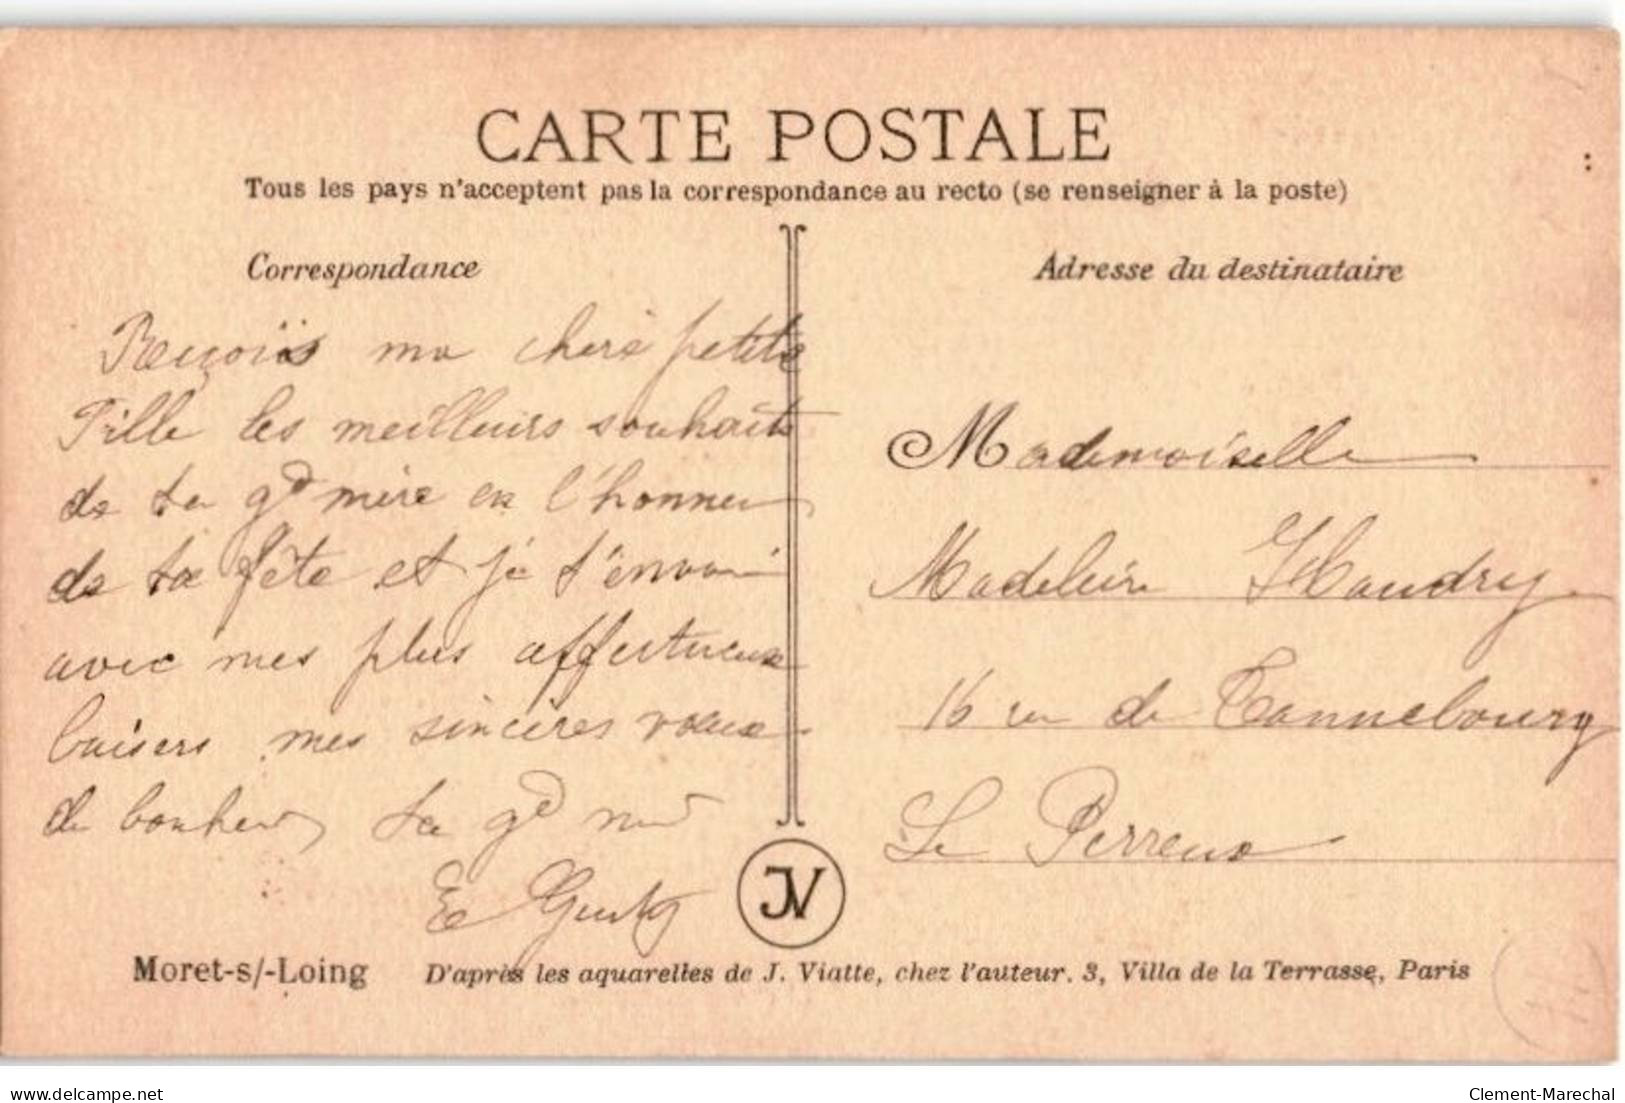 CARTE POSTALE
Tous les pays n'acceptent pas la correspondance au recto (se renseigner à la poste)
Correspondance
Reçois ma chère petite
Fille les meilleurs souhaits
de ta gd mère en l'honneur
de ta fête et je t'envoie
avec mes plus affectueux
baisers mes sincères vœux
de bonheur ta gd mère
E
Adresse du destinataire
Mademoiselle
Madeleine Haudry
16 rue de
Le Perreux
JV
Moret-s/-Loing D'après les aquarelles de J. Viatte, chez l'auteur. 3, Villa de la Terrasse, Paris
delcampe.net
Clement-Marechal